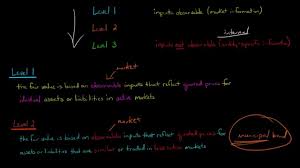 Level 1 inputs observable (market information)
Level 2
internal
Level 3 inputs not observable (entity specific info)
market
Level 1
the fair value is based on observable inputs that reflect quoted prices for
identical assets or liabilities in active markets
market
Level 2
the fair value is based on observable inputs that reflect quoted prices for municipal bond
assets or liabilities that are similar or traded in less active markets